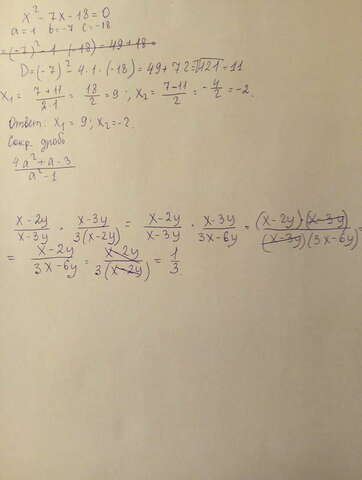 x² - 7x - 18 = 0
a = 1 b = -7 c = -18
= (-7)² - 1 · (-18) = 49 + 18 =
D = (-7)² - 4 · 1 · (-18) = 49 + 72 = √121 = 11
x₁ = (7 + 11)/(2·1) = 18/2 = 9 ; x₂ = (7 - 11)/2 = -4/2 = -2.
Ответ: x₁ = 9; x₂ = -2.
Сокр. дробь
(4a² + a - 3)/(a² - 1)
(x - 2y)/(x - 3y) · (x - 3y)/(3(x - 2y)) = (x - 2y)/(x - 3y) · (x - 3y)/(3x - 6y) = ((x - 2y) · (x - 3y))/((x - 3y)(3x - 6y)) =
= (x - 2y)/(3x - 6y) = (x - 2y)/(3(x - 2y)) = 1/3.